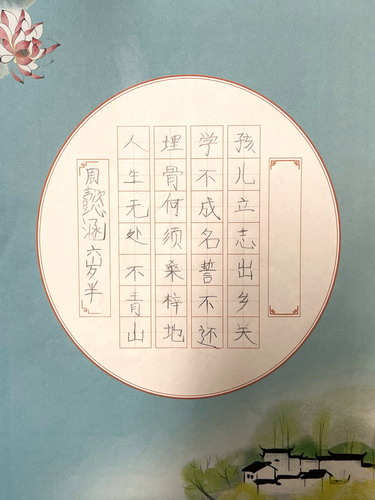 孩儿立志出乡关
学不成名誓不还
埋骨何须桑梓地
人生无处不青山
周懿涵六岁半